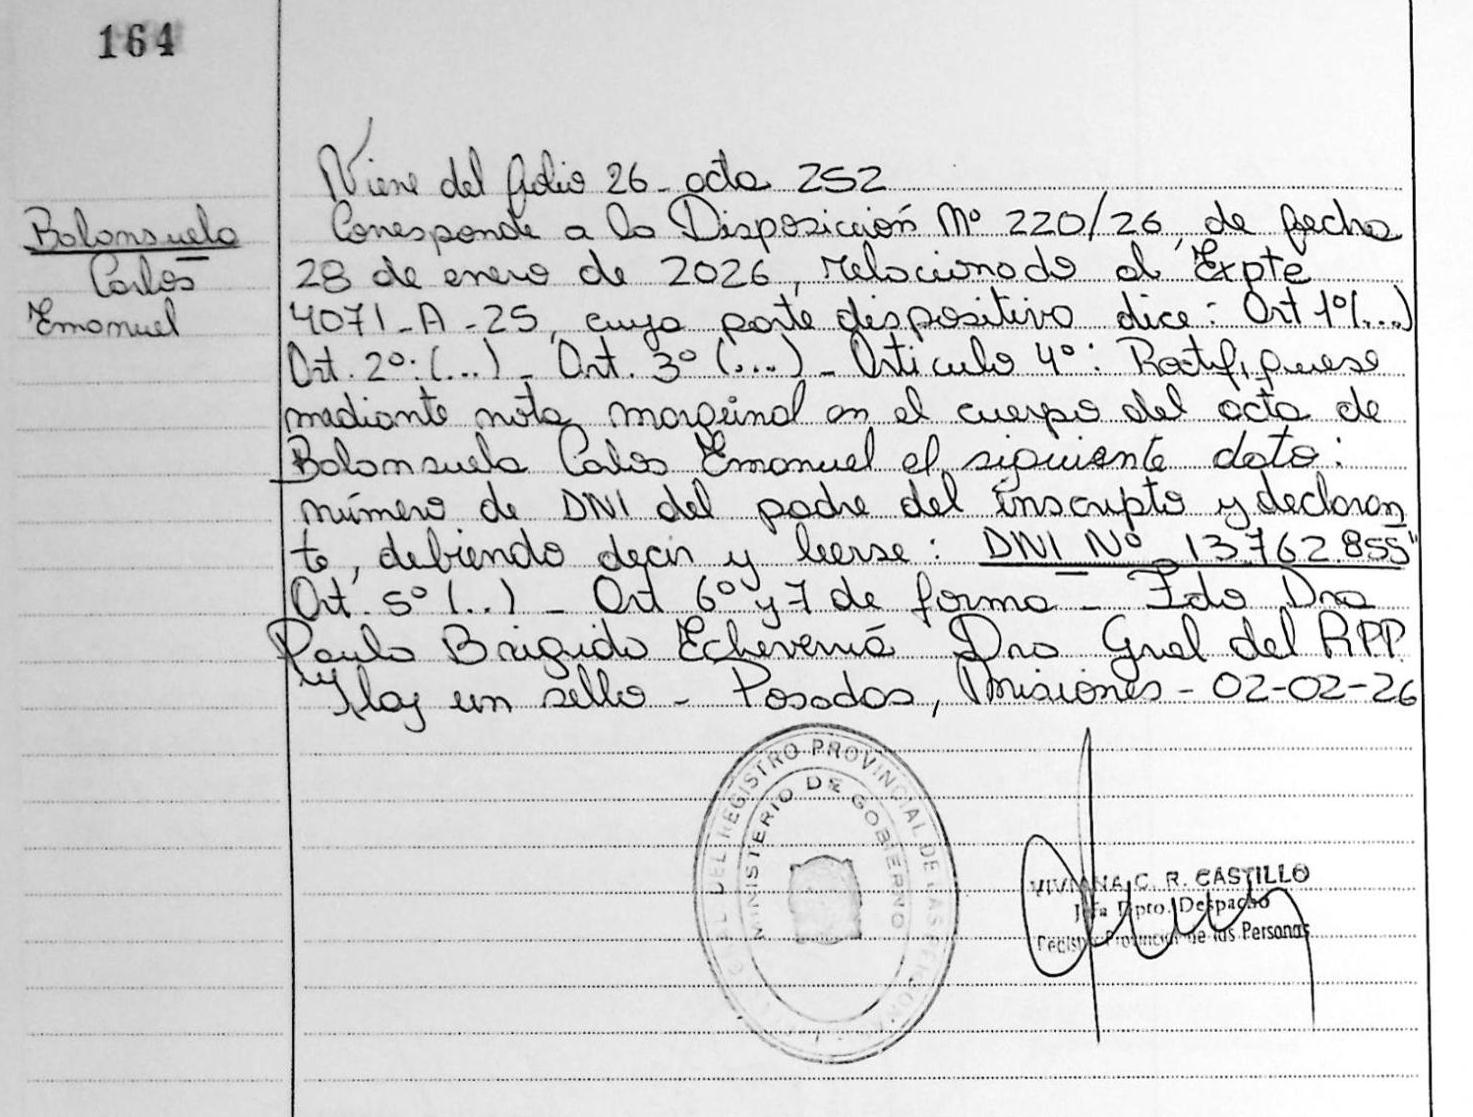 164
Viene del folio 26 - acta 252
Balansuela
Carlos
Emanuel
Corresponde a la Disposición Nº 220/26, de fecha
28 de enero de 2026, relacionado al Expte
4071-A-25, cuya parte dispositiva dice: Art 1º(...)
Art. 2º: (...) - Art. 3º (...) - Articulo 4º: Rectifiquese
mediante nota marginal en el cuerpo del acta de
Balansuela Carlos Emanuel el siguiente dato:
número de DNI del padre del inscripto y declaran
te, debiendo decir y leerse: DNI Nº 13.762.855"
Art. 5º (..) - Art 6º y 7 de forma - Fdo Dra
Paula Brigido Echeverriá Dra Gral del RPP.
Hay un sello - Posadas, Misiones - 02-02-26
REGISTRO PROVINCIAL DE LAS PERSONAS
MINISTERIO DE GOBIERNO
VIVIANA C. R. CASTILLO
Jefa Dpto. Despacho
Registro Provincial de las Personas